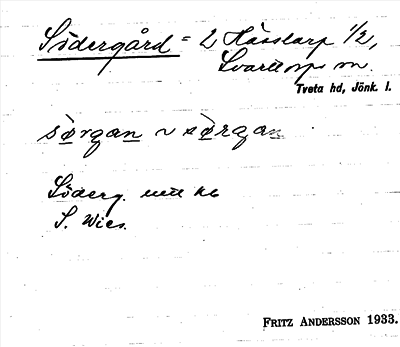 Södergård = 2 Hässlarp 1/2,
Svarttorps sn.
Tveta hd, Jönk. l.
sørgan ~ sørgan
Söderg. utt. kb
S. Wies.
FRITZ ANDERSSON 1933.